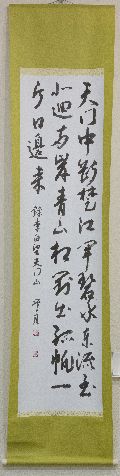 天门中断楚江开碧水东流至
北迴两岸青山相对出孤帆一
片日邊来
錄李白望天门山